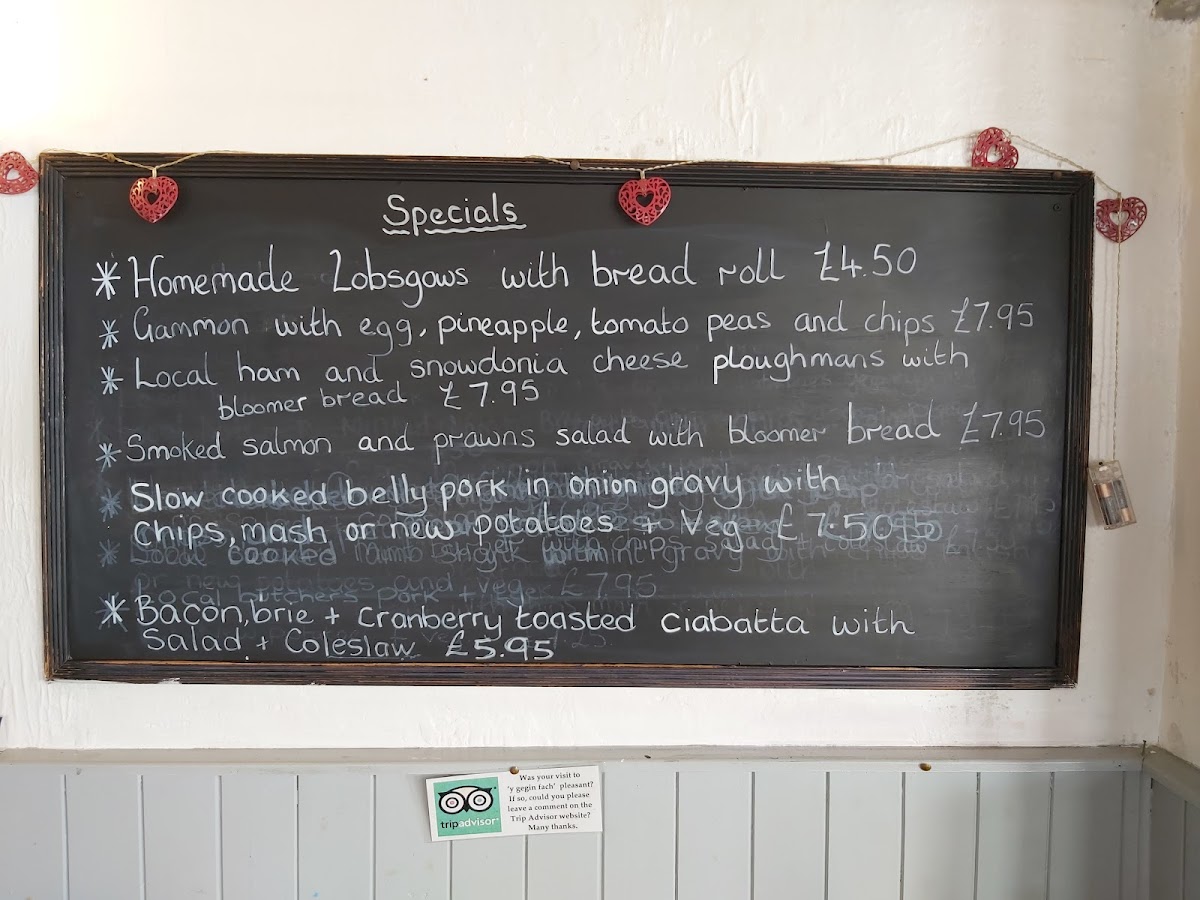 Specials
* Homemade Lobsgows with bread roll £4.50
* Gammon with egg, pineapple, tomato peas and chips £7.95
* Local ham and snowdonia cheese ploughmans with
bloomer bread £7.95
* Smoked salmon and prawns salad with bloomer bread £7.95
* Slow cooked belly pork in onion gravy with
chips, mash or new potatoes + veg £7.50
or new potatoes and veg £7.95
* Bacon, brie + cranberry toasted ciabatta with
Salad + Coleslaw £5.95
tripadvisor
Was your visit to
'y gegin fach' pleasant?
If so, could you please
leave a comment on the
Trip Advisor website?
Many thanks.